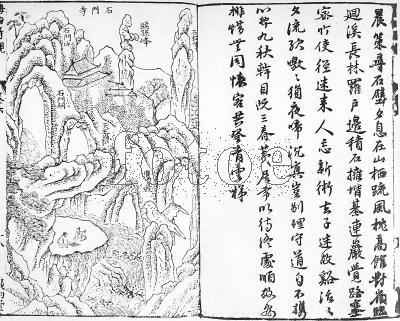 晨策尋石壁夕息在山栖疏風枕高館對嶺臨
迴溪長林羅戶邊積石擁堦基連巖覺路塞
密竹使徑迷來人忘新術去子迷故谿活〻
夕流駛噭〻猿夜啼沉冥豈別理守道自不攜
心契九秋榦目玩三春荑居常以待終處順故安
排惜無同懷客共登青雲梯
石門寺